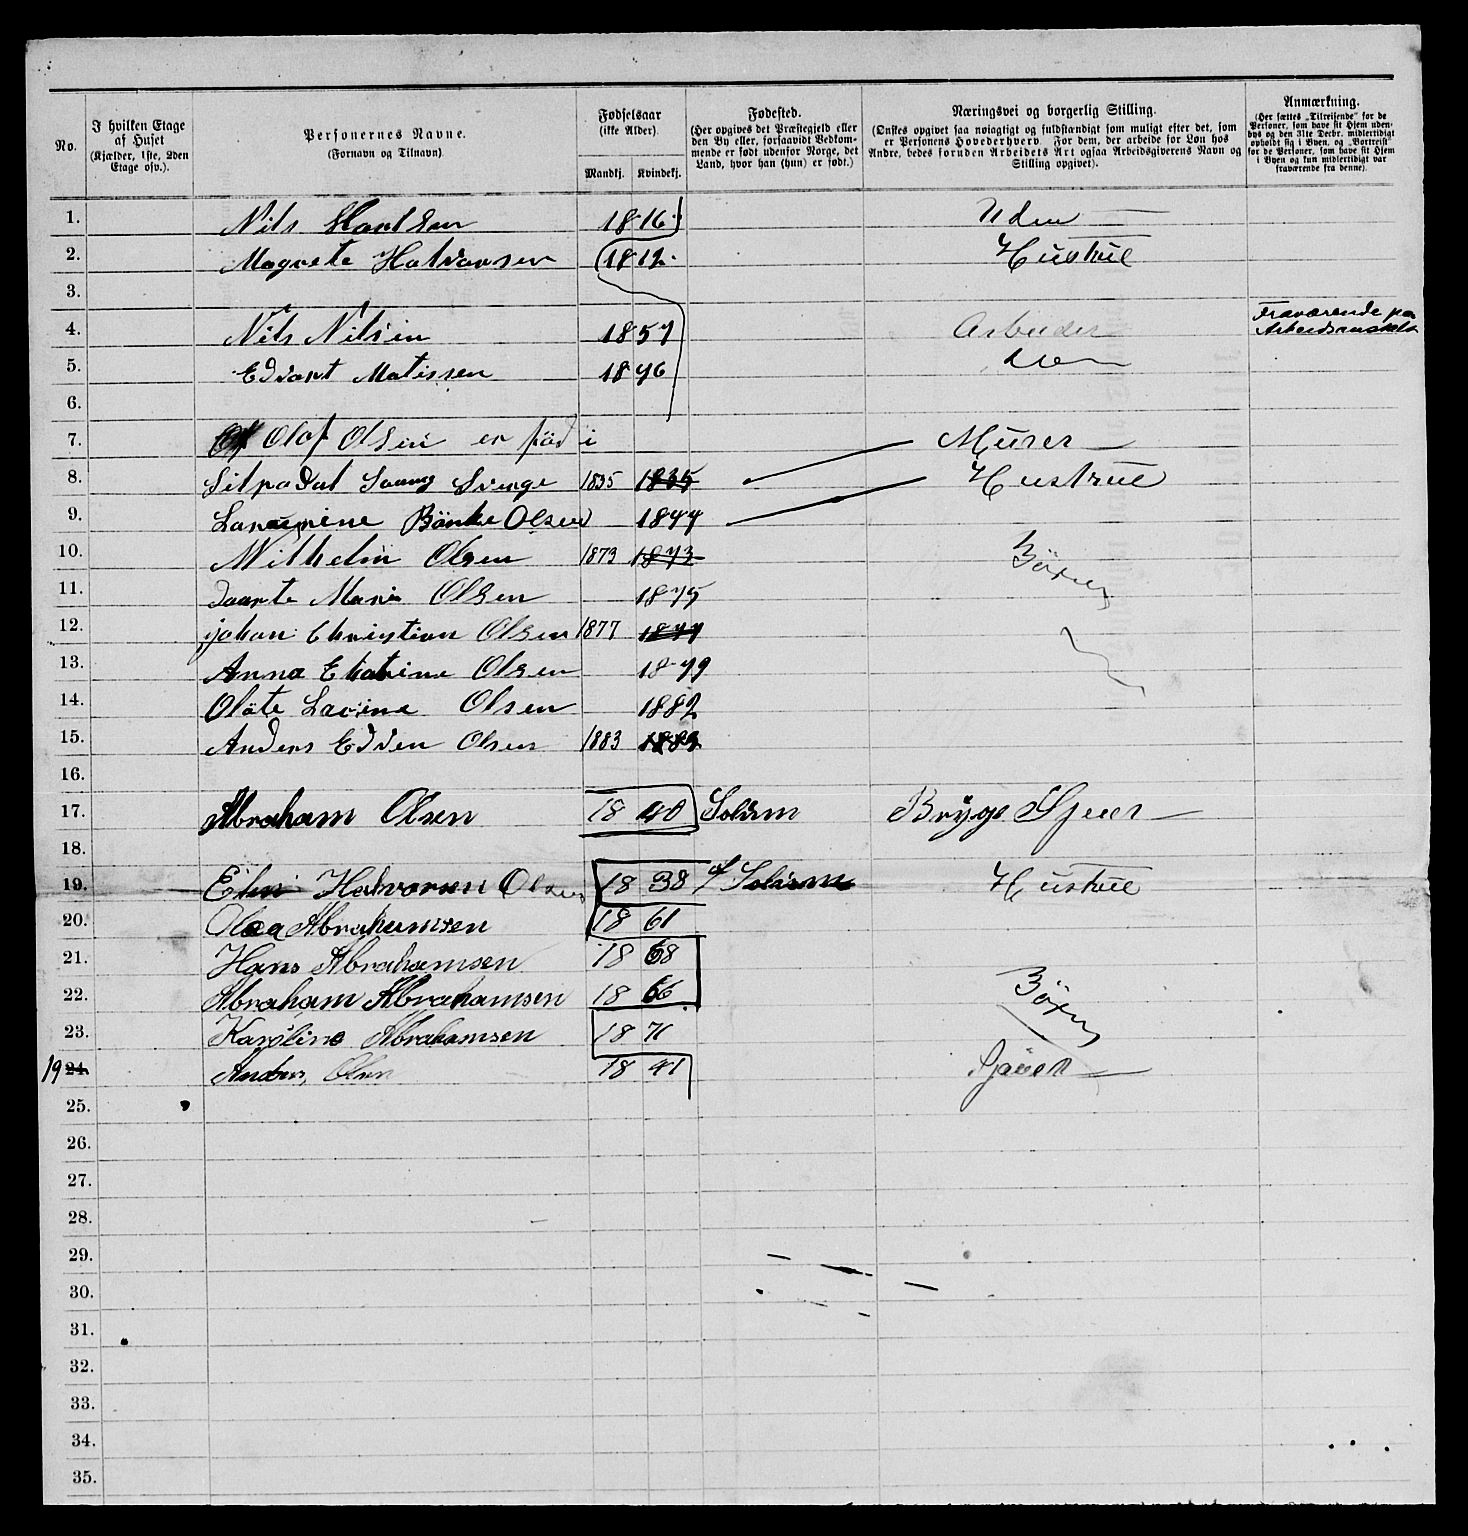 No. I hvilken Etage af Huset (Kjælder, 1ste, 2den Etage osv.). Personernes Navne. (Fornavn og Tilnavn). Fødselsaar (ikke Alder). Mandkj. Kvindekj. Fødested. (Her opgives det Præstegjeld eller den By eller, forsaavidt Vedkommende er født udenfor Norge, det Land, hvor han (hun) er født.) Næringsvei og borgerlig Stilling. (Ønskes opgivet saa nøiagtigt og fuldstændigt som muligt efter det, som er Personens Hovederhverv. For dem, der arbeide for Løn hos Andre, bedes foruden Arbeidets Art ogsaa Arbeidsgiverens Navn og Stilling opgivet). Anmærkning. (Her sættes „Tilreisende" for de Personer, som have sit Hjem udenbys og den 31te Decbr. midlertidigt opholdt sig i Byen, og „Bortreist" for de Personer, som have sit Hjem i Byen og kun midlertidigt var fraværende fra denne).
1. Nils 1816 Uden
2. Magrete Halvorsen 1812 Hustrue
3.
4. Nils Nilsin 1857 Arbeider Fraværende paa
5. Edvart Matissen 1846
6.
7. Olaf Olsen er född i Murer
8. 1835 1835 Hustrue
9. Olsen 1844
10. Wilhelm Olsen 1873 1873 Börn
11. Marie Olsen 1875
12. johan Christian Olsen 1877 1877
13. Anna Olsen 1879
14. Olöte Lavine Olsen 1882
15. Anders Edven Olsen 1883 1883
16.
17. Abraham Olsen 1840 Solum Brygesjouer
18.
19. Halvorsen Olsen 1838 Hustrue
20. Abrahamsen 1861
21. Hans Abrahamsen 1868
22. Abraham Abrahamsen 1866 Börn
23. Karoline Abrahamsen 1871
19 24. Anders Olsen 1841 Sjouer
25.
26.
27.
28.
29.
30.
31.
32.
33.
34.
35.